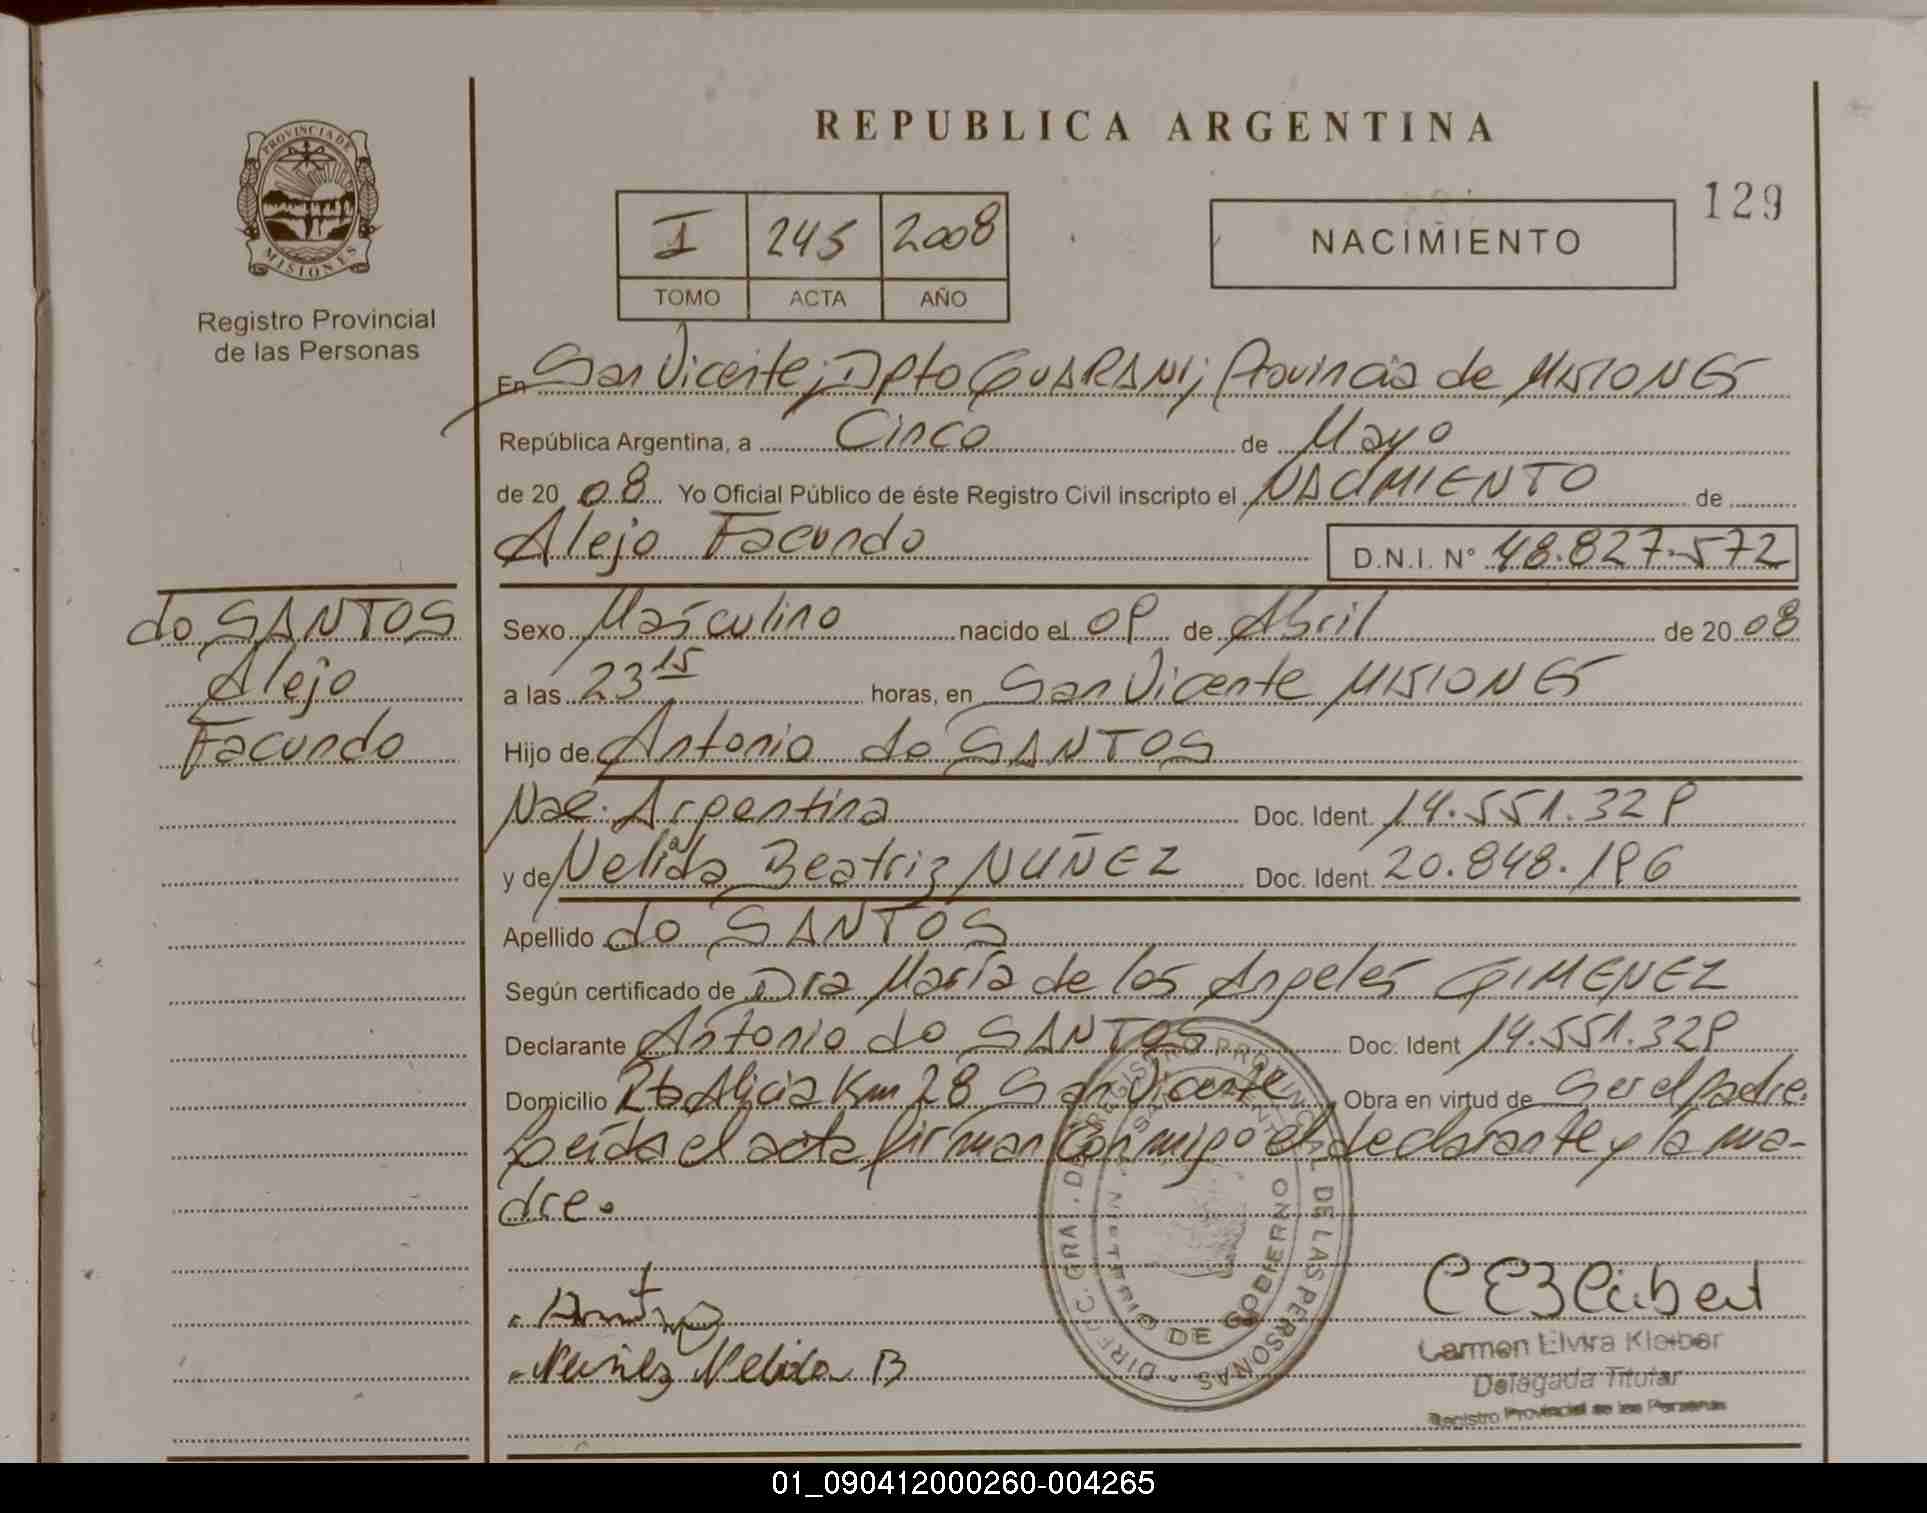 REPUBLICA ARGENTINA
129
PROVINCIA DE
MISIONES
Registro Provincial
de las Personas
I 245 2008
TOMO ACTA AÑO
NACIMIENTO
En San Vicente, Dpto GUARANI, Provincia de MISIONES
República Argentina, a Cinco de Mayo
de 20 08 Yo Oficial Público de éste Registro Civil inscripto el NACIMIENTO de
Alejo Facundo D.N.I. N° 48.827.572
do SANTOS
Alejo
Facundo
Sexo Masculino nacido el 09 de Abril de 20 08
a las 23 15 horas, en San Vicente MISIONES
Hijo de Antonio do SANTOS
Nac. Argentina Doc. Ident. 14.551.329
y de Nelida Beatriz NUÑEZ Doc. Ident. 20.848.196
Apellido do SANTOS
Según certificado de Dra María de los Angeles GIMENEZ
Declarante Antonio do SANTOS Doc. Ident 14.551.329
Domicilio Rta Alicia Km 28 San Vicente Obra en virtud de Ser el padre.
Leída el acta firman conmigo el declarante y la ma-
dre.
DIRECC. GRA. DEL REGISTRO PROVINCIAL DE LAS PERSONAS
MINISTERIO DE GOBIERNO
Nuñez Nelida B
Carmen Elvira Kleiber
Delegada Titular
Registro Provincial de las Personas
01_090412000260-004265